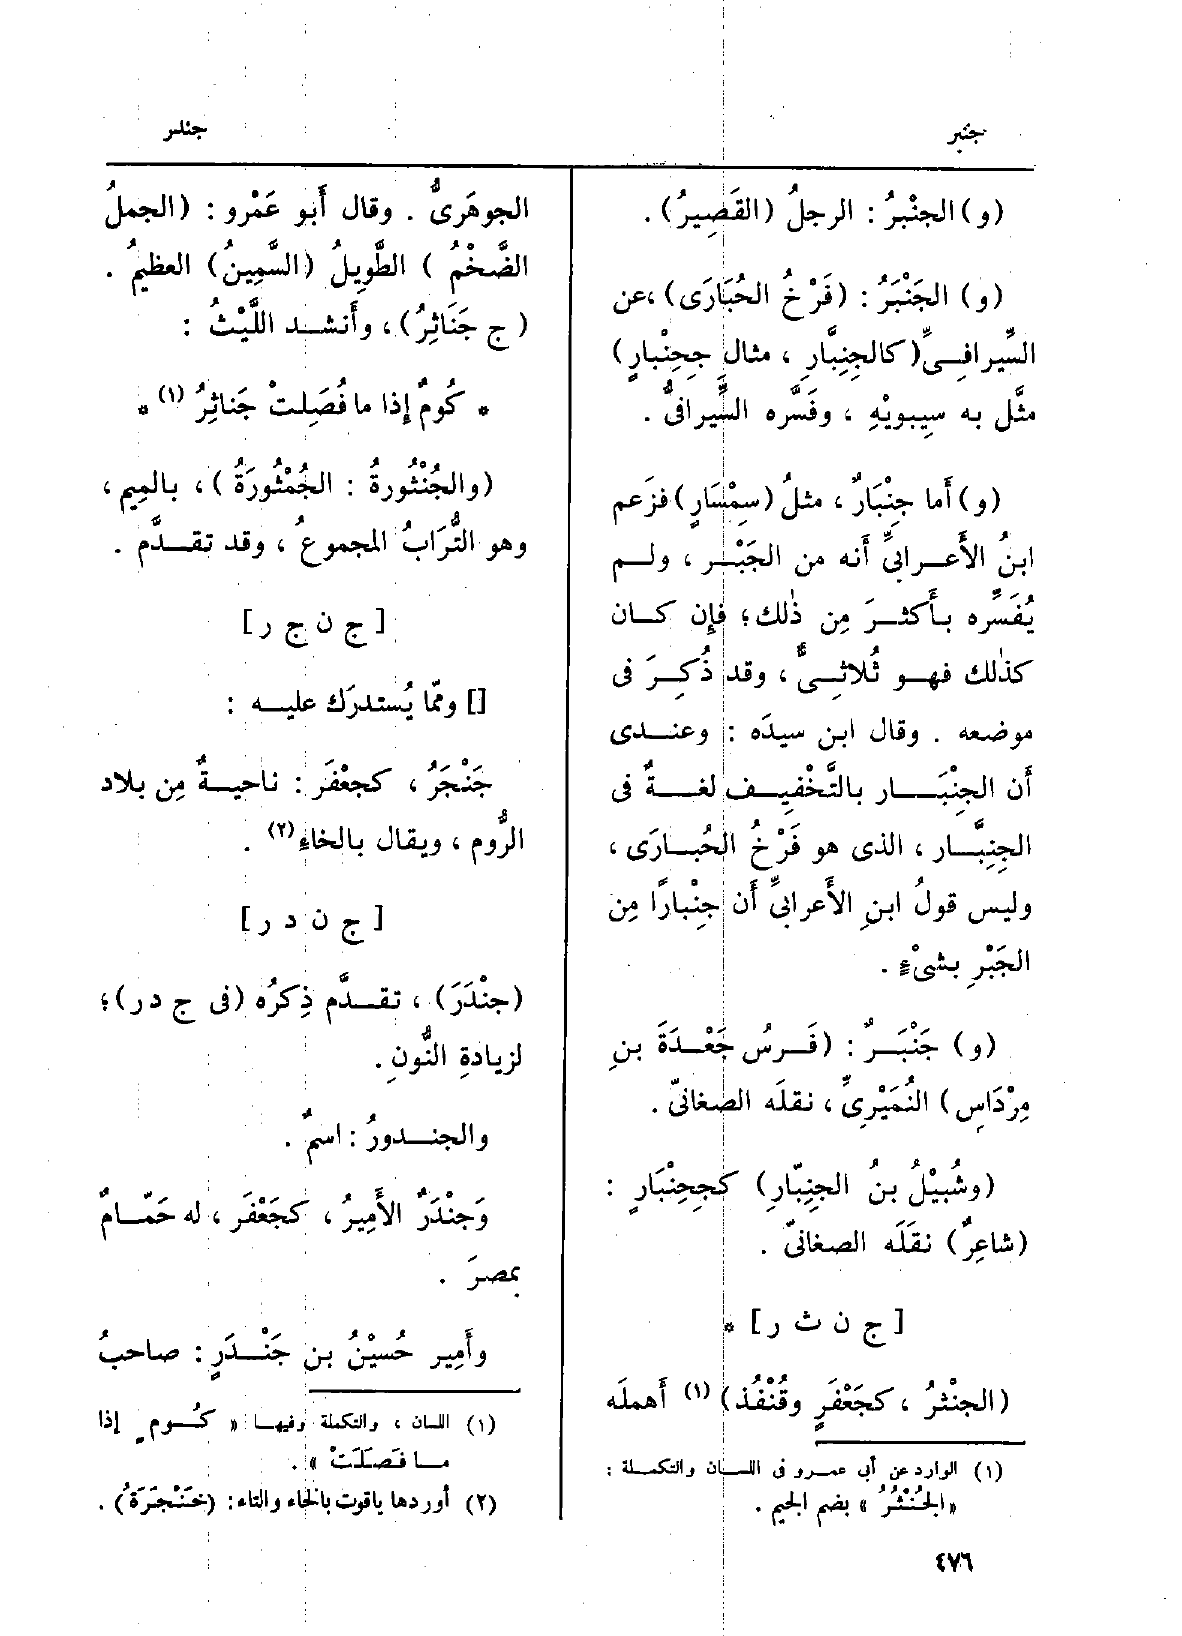 جنبر
جندر
(و) الجنْبرُ : الرجلُ (القَصِيرُ) .
(و) الجَنْبَرُ : (فَرْخُ الحُبَارَى) ، عن
السِّيرافِىِّ (كالجِنِبَّارِ ، مثال جِحِنْبارٍ)
مثَّل به سِيبويْهِ ، وفَسَّره السِّيرافىُّ .
(و) أَما جِنْبَارٌ ، مثلُ (سِمْسَارٍ) فزَعم
ابنُ الأَعرابىِّ أَنه من الجَبْر ، ولم
يُفسِّره بأَكثرَ مِن ذٰلك ؛ فإِن كان
كذٰلك فهو ثُلاثىٌّ ، وقد ذُكِرَ فى
موضعه . وقال ابن سيدَه : وعندى
أَن الجِنْبَار بالتَّخْفِيف لغةٌ فى
الجِنِبَّار ، الذى هو فَرْخُ الحُبارَى ،
وليس قولُ ابنِ الأَعرابىِّ أَن جِنْبارًا مِن
الجَبْرِ بشىْءٍ .
(و) جَنْبَرٌ : (فَرسُ جَعْدَةَ بنِ
مِرْدَاسٍ) النُّمَيْرِىِّ ، نقلَه الصغانىّ .
(وشُبيْلُ بنُ الجِنِبَّارِ) كجِحِنْبَارٍ :
(شاعِرٌ) نقلَه الصغانىّ .
[ ج ن ث ر ] *
(الجنْثرُ ، كجَعْفَرٍ وقُنْفُذ) (١) أَهملَه
(١) الوارد عن أبى عمرو فى اللسان والتكملة :
« الجُنْثُرُ » بضم الجيم .
الجوهَرىُّ . وقال أَبو عَمْرو : (الجملُ
الضَّخْمُ) الطَّوِيلُ (السَّمِينُ) العظيمُ .
(ج جَنَاثِرُ) ، وأَنشد اللَّيْثُ :
* كُومٌ إِذا ما فُصَلِتْ جَناثِرُ (١) *
(والجُنْثُورةُ : الجُمْثُورَةُ) ، بالميم ،
وهو التُّرَابُ المجموعُ ، وقد تقدَّم .
[ ج ن ج ر ]
[] وممّا يُستدرَك عليه :
جَنْجَرُ ، كجعْفَر : ناحيةٌ مِن بلاد
الرُّوم ، ويقال بالخاءِ (٢) .
[ ج ن د ر ]
(جنْدَرَ) ، تقدَّم ذِكرُه (فى ج در) ؛
لزيادةِ النُّونِ .
والجندورُ : اسمٌ .
وَجنْدَرٌ الأَمِيرُ ، كجَعْفَر ، له حَمّامٌ
بمصرَ .
وأَمِير حُسيْنُ بن جَنْدَرٍ : صاحبُ
(١) اللسان ، والتكملة وفيها « كُومٍ إذا
ما فَصَلَتْ » .
(٢) أوردها ياقوت بالخاء والتاء : (خَنْجَرَةُ) .
٤٧٦